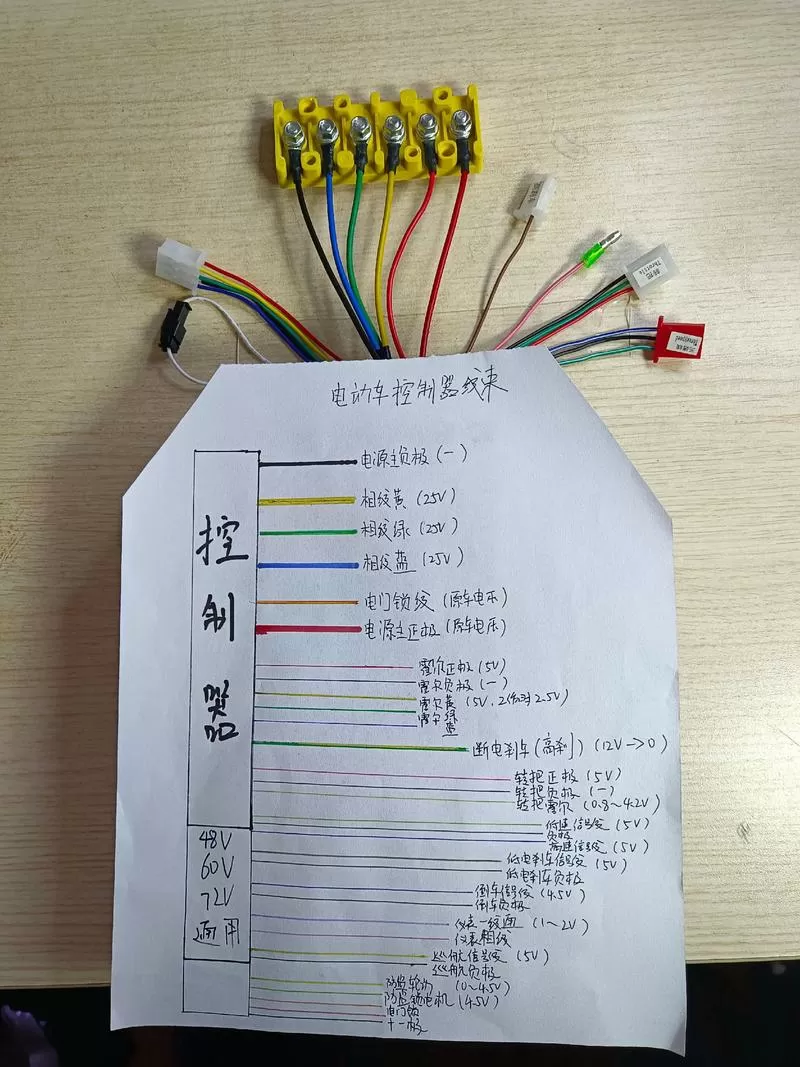 转把
Throttle
三速线
电动车控制器线束
控制器
电源主负极（一）
相线黄（25V）
相线绿（25V）
相线蓝（25V）
电门锁线（原车电压）
电源主正极（原车电压）
霍尔正极（5V）
霍尔负极（一）
霍尔黄（5V，
2.5V）
霍尔绿
蓝
断电刹车（高刹）（12V→0）
转把正极（5V）
转把负极（一）
转把霍尔（0.8～4.2V）
低速信号线（5V）
负极
高速信号线（5V）
低电刹车信号线（5V）
低电刹车负极
倒车信号线（4.5V）
倒车负极
仪表一线通（1～2V）
仪表相线
巡航信号线（5V）
巡航负极
防盗轮动（0～4.5V）
防盗锁电机（4.5V）
电门锁
十一极
48V
60V
72V
通用